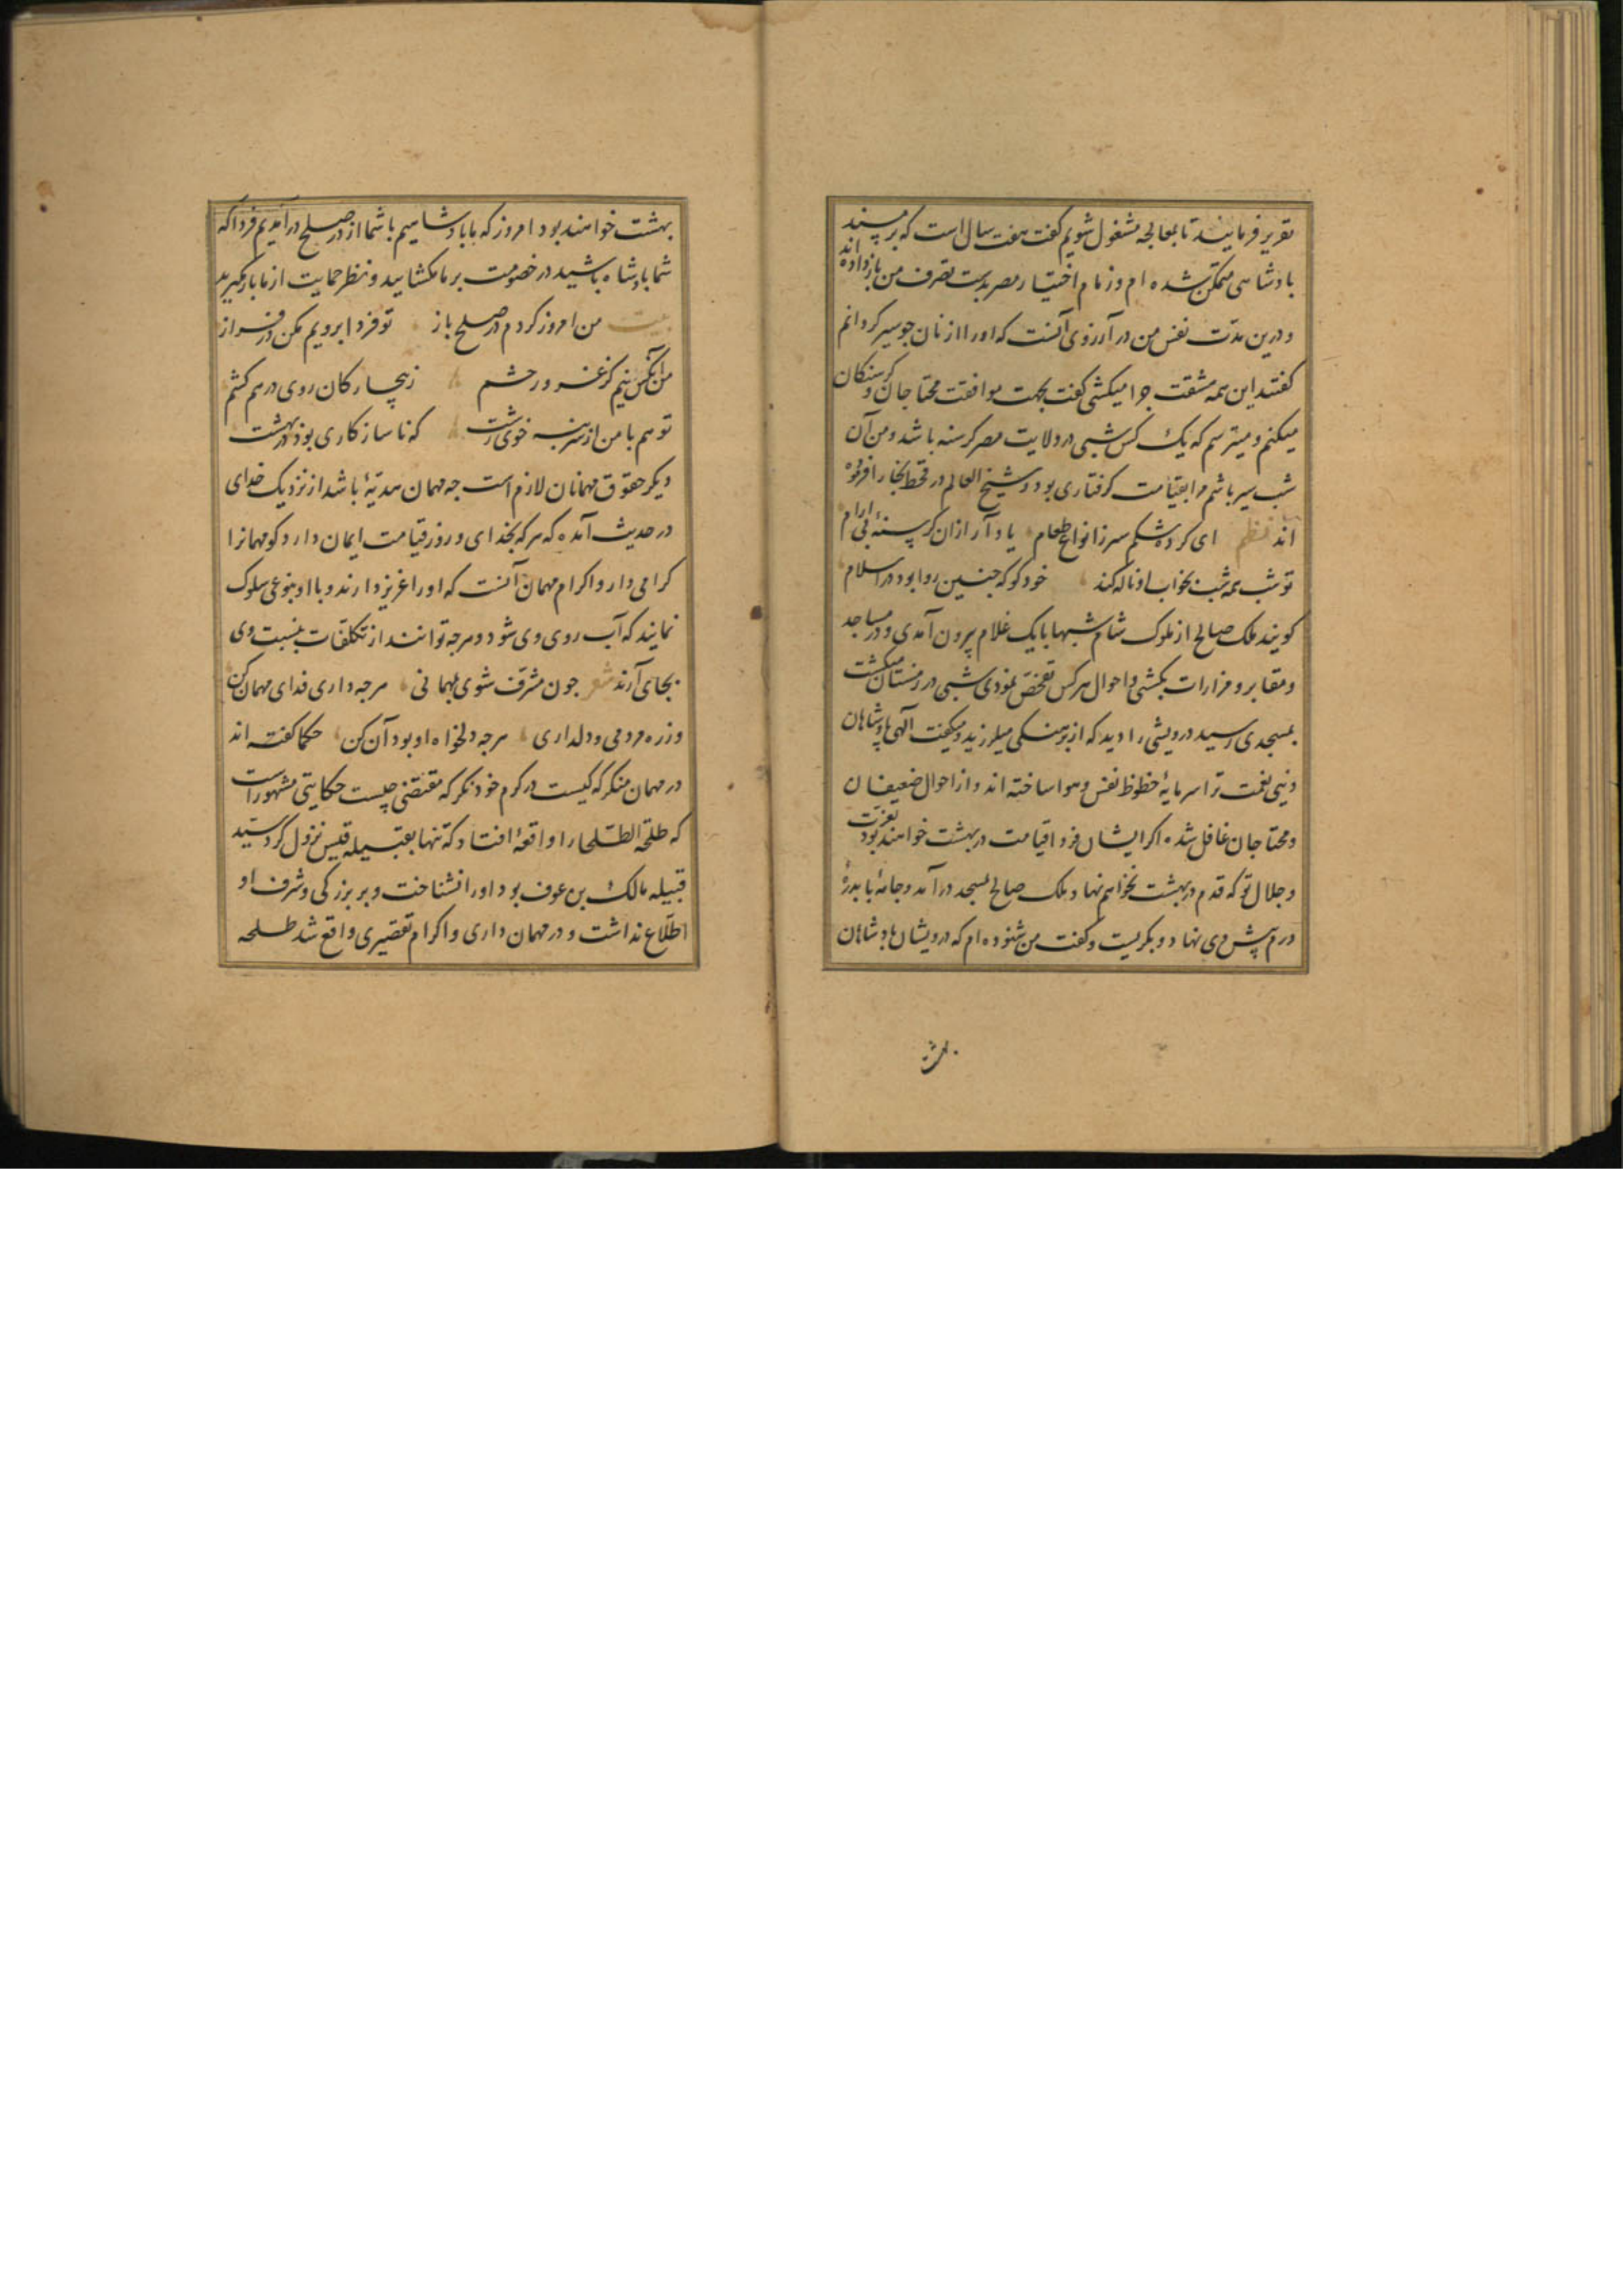 تقریر فرمایند تا بمعالجه مشغول شویم کفت هفت سال است که بر مسند
بادشاهی متمکن شده ام و زمام اختیار مصر بدست تصرف من باز داده اند
و درین مدت نفس من در آرزوی آنست که او را از نان جو سیر کردانم
کفتند این همه مشقت چرا میکشی کفت بجهت موافقت محتاجان و کرسنکان
میکنم و میترسم که یک کس شبی در ولایت مصر کرسنه باشد و من آن
شب سیر باشم مرا بقیامت کرفتاری بود و شیخ العالم در قحط بخارا فرموده
اند نظم ای کرده شکم سر ز انواع طعام یاد آر ازان کرسنهٔ بی آرام
تو شب همه شب بخواب او ناله کند خود کو که جنین روا بود در اسلام
کویند ملک صالح از ملوک شام شبها با یک غلام بیرون آمدی و در مساجد
و مقابر و مزارات بکشتی و احوال هر کس تفحص نمودی شبی در زمستان میکشت
بمسجدی رسید درویشی را دید که از برهنکی میلرزید و میکفت الهی بادشاهان
دنیی نعمت ترا سرمایهٔ حظوظ نفس و هوا ساخته اند و از احوال ضعیفان
و محتاجان غافل شده اکر ایشان فردا قیامت در بهشت خواهند بود بعزت
و جلال تو که قدم در بهشت نخواهم نهاد ملک صالح بمسجد درآمد و جامهٔ با بدرهٔ
درم پیش وی نهاد و بکریست و کفت من شنوده ام که درویشان بادشاهان
بهشت
بهشت خواهند بود امروز که ما بادشاهیم با شما از در صلح در آمدیم فردا که
شما بادشاه باشید در خصومت بر ما مکشایید و نظر حمایت از ما باز مکیرید
بیت من امروز کردم در صلح باز تو فردا برویم مکن در فراز
من آنکس نیم کز غرور حشم ز بیچارکان روی در هم کشم
تو هم با من از سر بنه خوی زشت که ناسازکاری بود در بهشت
دیکر حقوق مهمانان لازم است جه مهمان هدیهٔ باشد از نزدیک خدای
در حدیث آمده که هر که بخدای و روز قیامت ایمان دارد کو مهمانرا
کرامی دار و اکرام مهمان آنست که او را عزیز دارند و با او بنوعی سلوک
نمایند که آب روی وی شود و هرجه توانند از تکلفات بنسبت وی
بجای آرند شعر جون مشرف شوی بمهمانی هرجه داری فدای مهمان کن
وز ره مردمی و دلداری هرجه دلخواه او بود آن کن حکما کفته اند
در مهمان منکر که کیست در کرم خود نکر که مقتضی چیست حکایتی مشهور است
که طلحة الطلحار را واقعهٔ افتاد که تنها بقبیله قیس نزول کرد سید
قبیله مالک بن عوف بود او را نشناخت و بر بزرکی و شرف او
اطلاع نداشت و در مهمان داری و اکرام تقصیری واقع شد طلحه